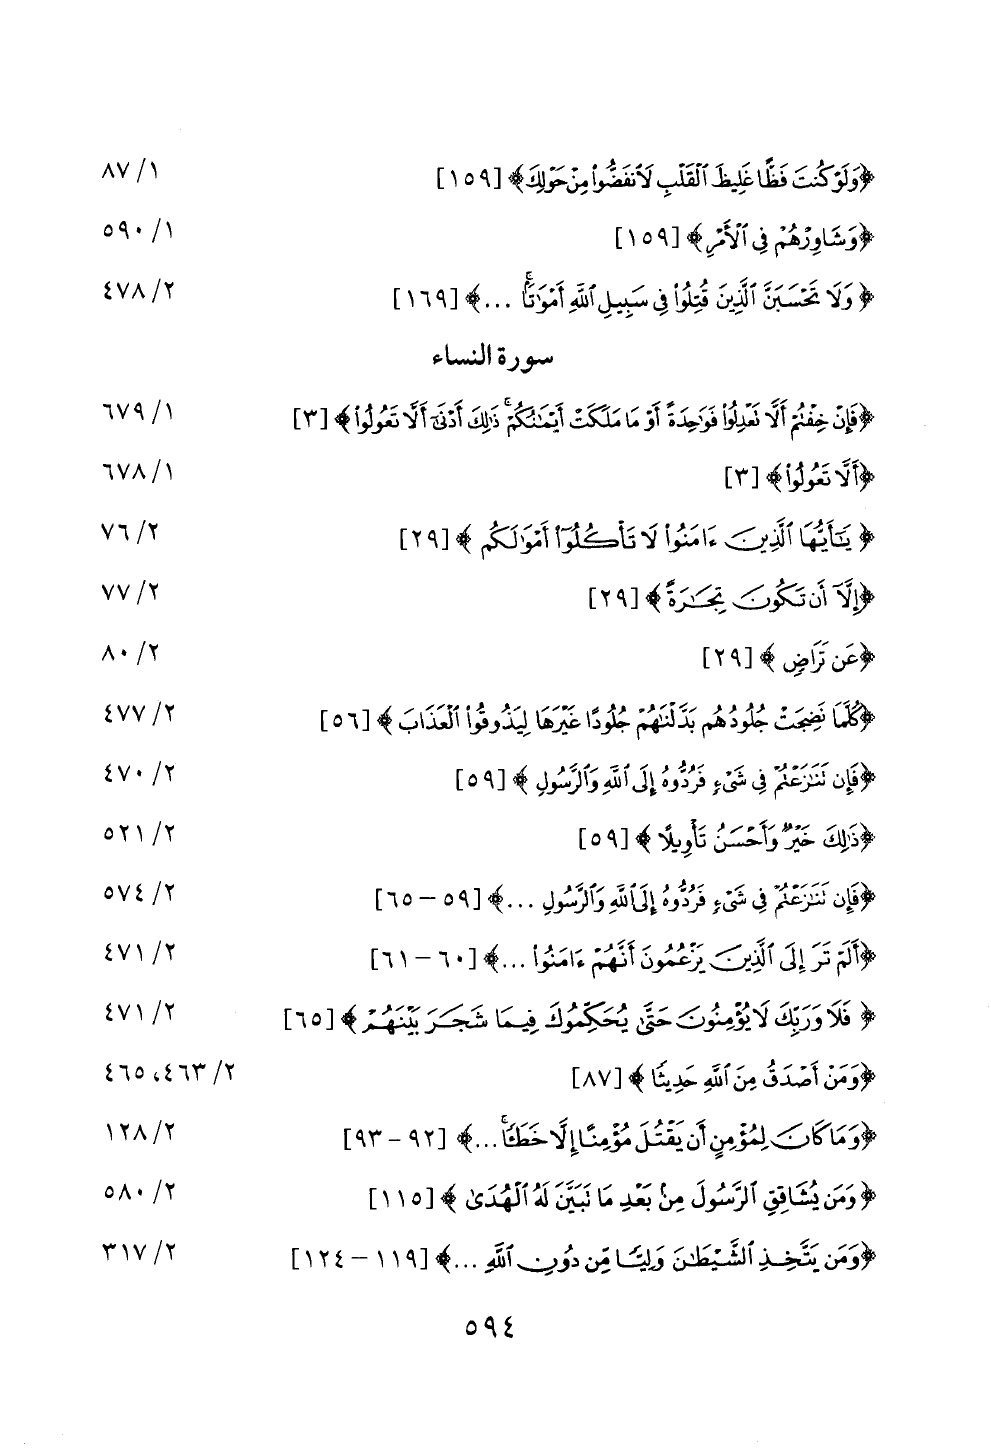 ﴿وَلَوْ كُنتَ فَظًّا غَلِيظَ ٱلْقَلْبِ لَٱنفَضُّوا۟ مِنْ حَوْلِكَ﴾ [١٥٩] ١/ ٨٧
﴿وَشَاوِرْهُمْ فِى ٱلْأَمْرِ﴾ [١٥٩] ١/ ٥٩٠
﴿وَلَا تَحْسَبَنَّ ٱلَّذِينَ قُتِلُوا۟ فِى سَبِيلِ ٱللَّهِ أَمْوَٰتًۢا ۚ ...﴾ [١٦٩] ٢/ ٤٧٨
سورة النساء
﴿فَإِنْ خِفْتُمْ أَلَّا تَعْدِلُوا۟ فَوَٰحِدَةً أَوْ مَا مَلَكَتْ أَيْمَٰنُكُمْ ۚ ذَٰلِكَ أَدْنَىٰٓ أَلَّا تَعُولُوا۟﴾ [٣] ١/ ٦٧٩
﴿أَلَّا تَعُولُوا۟﴾ [٣] ١/ ٦٧٨
﴿يَٰٓأَيُّهَا ٱلَّذِينَ ءَامَنُوا۟ لَا تَأْكُلُوٓا۟ أَمْوَٰلَكُم﴾ [٢٩] ٢/ ٧٦
﴿إِلَّآ أَن تَكُونَ تِجَٰرَةً﴾ [٢٩] ٢/ ٧٧
﴿عَن تَرَاضٍ﴾ [٢٩] ٢/ ٨٠
﴿كُلَّمَا نَضِجَتْ جُلُودُهُم بَدَّلْنَٰهُمْ جُلُودًا غَيْرَهَا لِيَذُوقُوا۟ ٱلْعَذَابَ﴾ [٥٦] ٢/ ٤٧٧
﴿فَإِن تَنَٰزَعْتُمْ فِى شَىْءٍ فَرُدُّوهُ إِلَى ٱللَّهِ وَٱلرَّسُولِ﴾ [٥٩] ٢/ ٤٧٠
﴿ذَٰلِكَ خَيْرٌ وَأَحْسَنُ تَأْوِيلًا﴾ [٥٩] ٢/ ٥٢١
﴿فَإِن تَنَٰزَعْتُمْ فِى شَىْءٍ فَرُدُّوهُ إِلَى ٱللَّهِ وَٱلرَّسُولِ ...﴾ [٥٩ – ٦٥] ٢/ ٥٧٤
﴿أَلَمْ تَرَ إِلَى ٱلَّذِينَ يَزْعُمُونَ أَنَّهُمْ ءَامَنُوا۟ ...﴾ [٦٠ – ٦١] ٢/ ٤٧١
﴿فَلَا وَرَبِّكَ لَا يُؤْمِنُونَ حَتَّىٰ يُحَكِّمُوكَ فِيمَا شَجَرَ بَيْنَهُمْ﴾ [٦٥] ٢/ ٤٧١
﴿وَمَنْ أَصْدَقُ مِنَ ٱللَّهِ حَدِيثًا﴾ [٨٧] ٢/ ٤٦٣، ٤٦٥
﴿وَمَا كَانَ لِمُؤْمِنٍ أَن يَقْتُلَ مُؤْمِنًا إِلَّا خَطَـًٔا ۚ ...﴾ [٩٢ – ٩٣] ٢/ ١٢٨
﴿وَمَن يُشَاقِقِ ٱلرَّسُولَ مِنۢ بَعْدِ مَا تَبَيَّنَ لَهُ ٱلْهُدَىٰ﴾ [١١٥] ٢/ ٥٨٠
﴿وَمَن يَتَّخِذِ ٱلشَّيْطَٰنَ وَلِيًّا مِّن دُونِ ٱللَّهِ ...﴾ [١١٩ – ١٢٤] ٢/ ٣١٧
٥٩٤